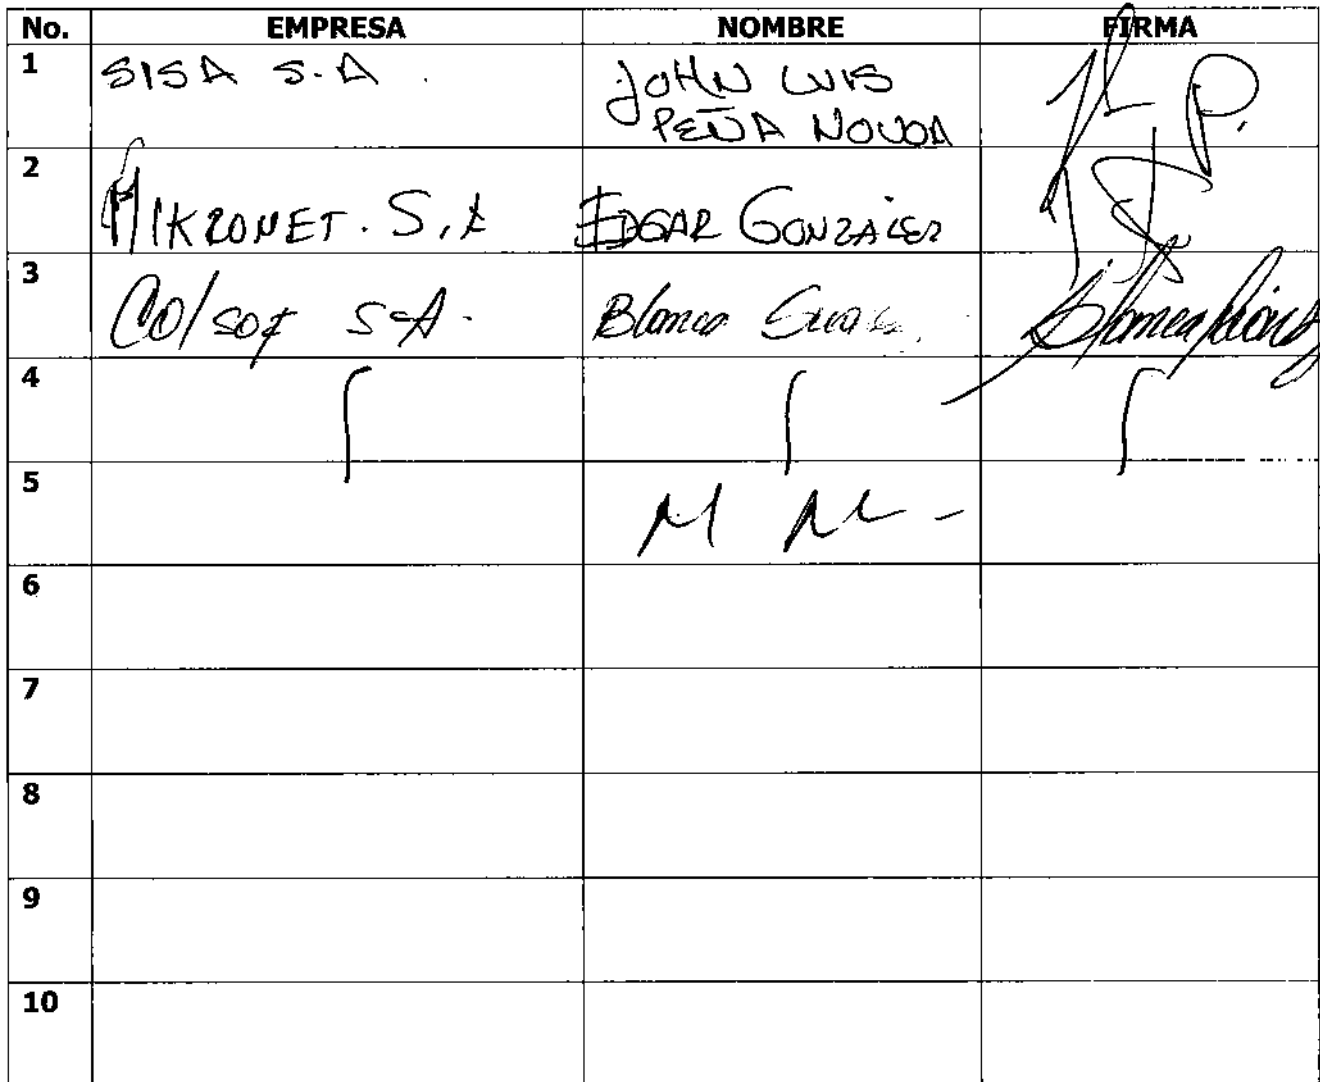 No. EMPRESA NOMBRE FIRMA
1 SISA S.A. JOHN LUIS
PEÑA NOVOA
2 MIKRONET. S.A EDGAR GONZALEZ
3 Colsof S.A. Blanca
4
5
6
7
8
9
10